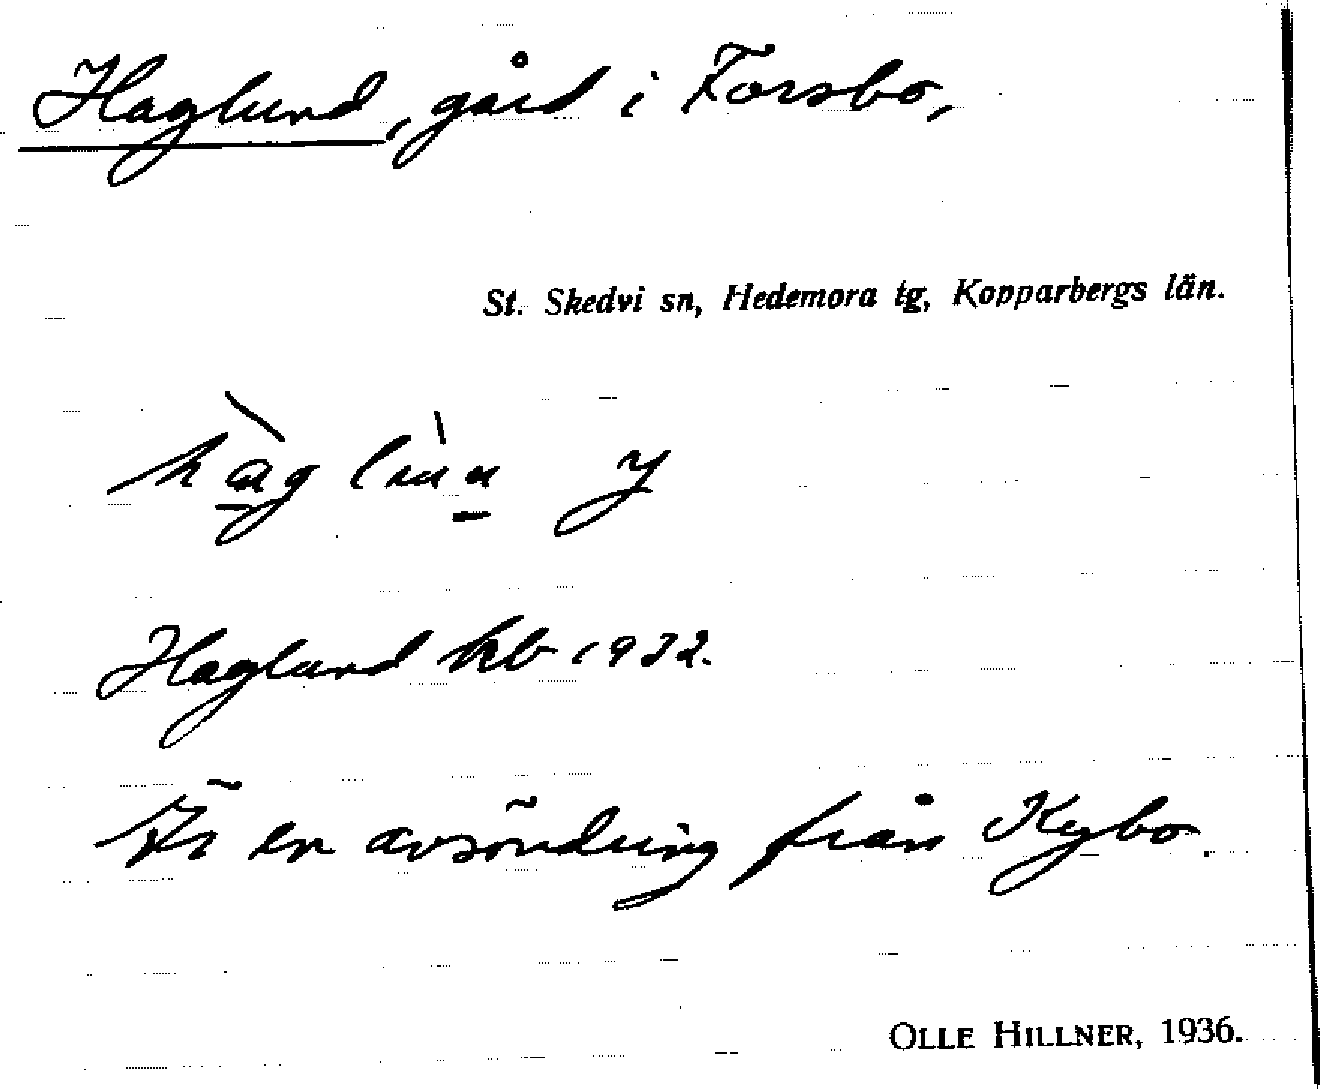 Haglund, gård i Forsbo,
St. Skedvi sn, Hedemora tg, Kopparbergs län.
hàg lùn y
Haglund kb 1932.
Är en avsöndring från Kybo.
OLLE HILLNER, 1936.